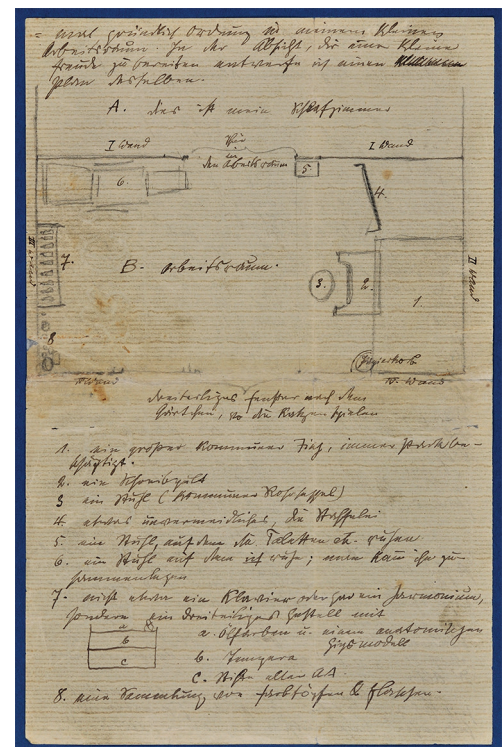 = mal gründlich Ordnung in meinem kleinen
Arbeitsraum. In der Absicht, dir eine kleine
Freude zu bereiten entwerfe ich einen
Plan desselben.
A. das ist mein Schlafzimmer
I Wand Tür I Wand
in
den Arbeitsraum
6. 5. 4.
III Wand 7. B. Arbeitsraum. 3. 2. 1. II Wand
8 Papierkorb
IV. Wand
dreiteiliges Fenster nach dem
Gärtchen, wo die Katzen spielen
1. ein großer Tisch, immer stark be-
schäftigt.
2. ein Schreibpult
3 ein Stuhl (
4. etwas unvermeidliches, die Staffelei
5. ein Stuhl, auf dem die Paletten etc. ruhen
6. ein Stuhl auf dem ich ruhe; man kann ihn zu-
sammenlegen
7. nicht etwa ein Klavier oder gar ein Harmonium,
sondern ein dreiteiliges Gestell mit
a a. Ölfarben u. einem anatomischen
Gipsmodell
b b. Tempera
c c. aller Art
8. eine Sammlung von Farbtöpfen & Flaschen.